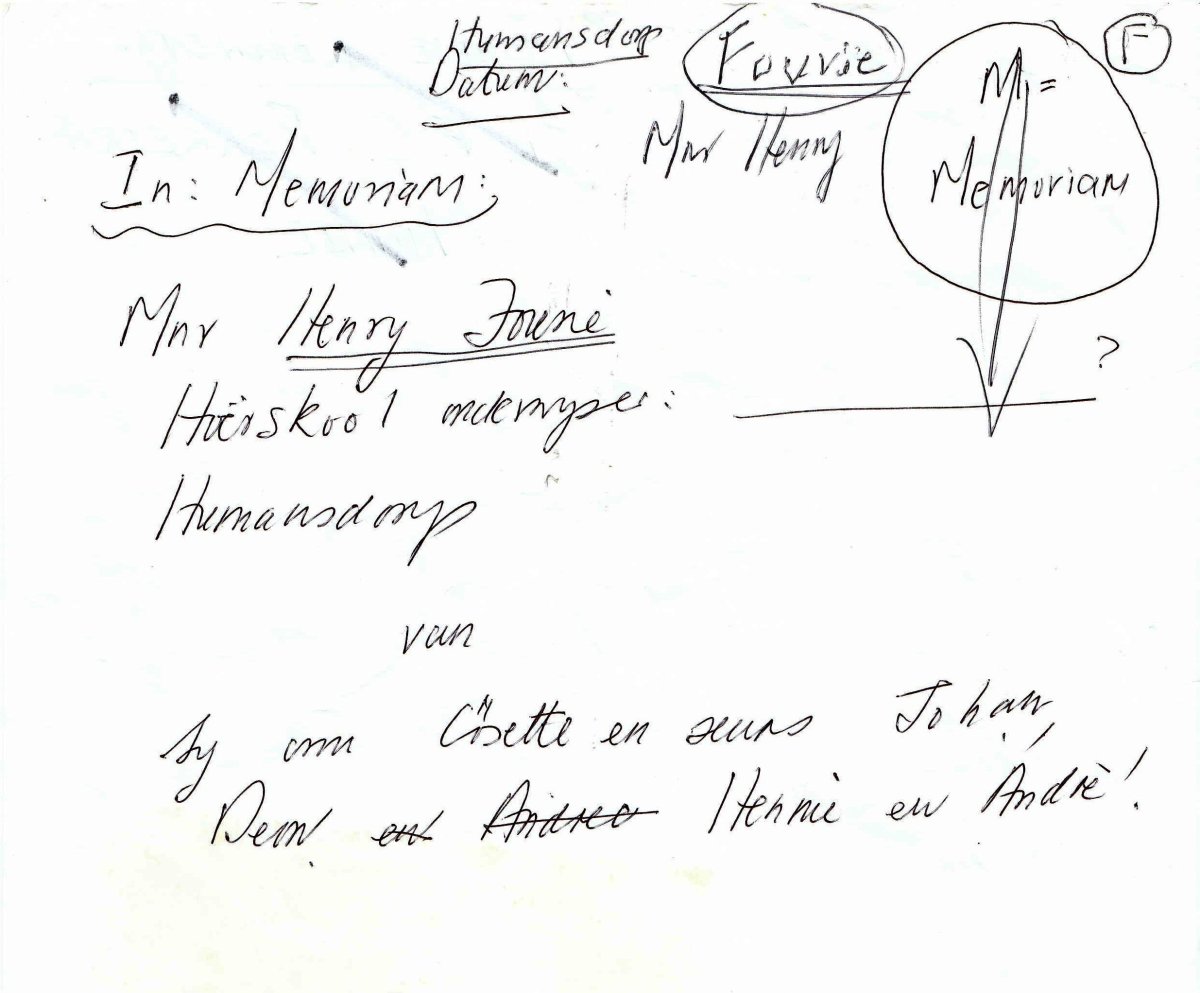 Humansdorp
Datum:
Fourie
Mnr Henry
F
M =
Memoriam
In: Memoriam:
Mnr Henry Fourie
?
Hoërskool onderwyser:
Humansdorp
van
Sy Cosette en seuns Johan,
Deon, en Andrea Hennie en André!